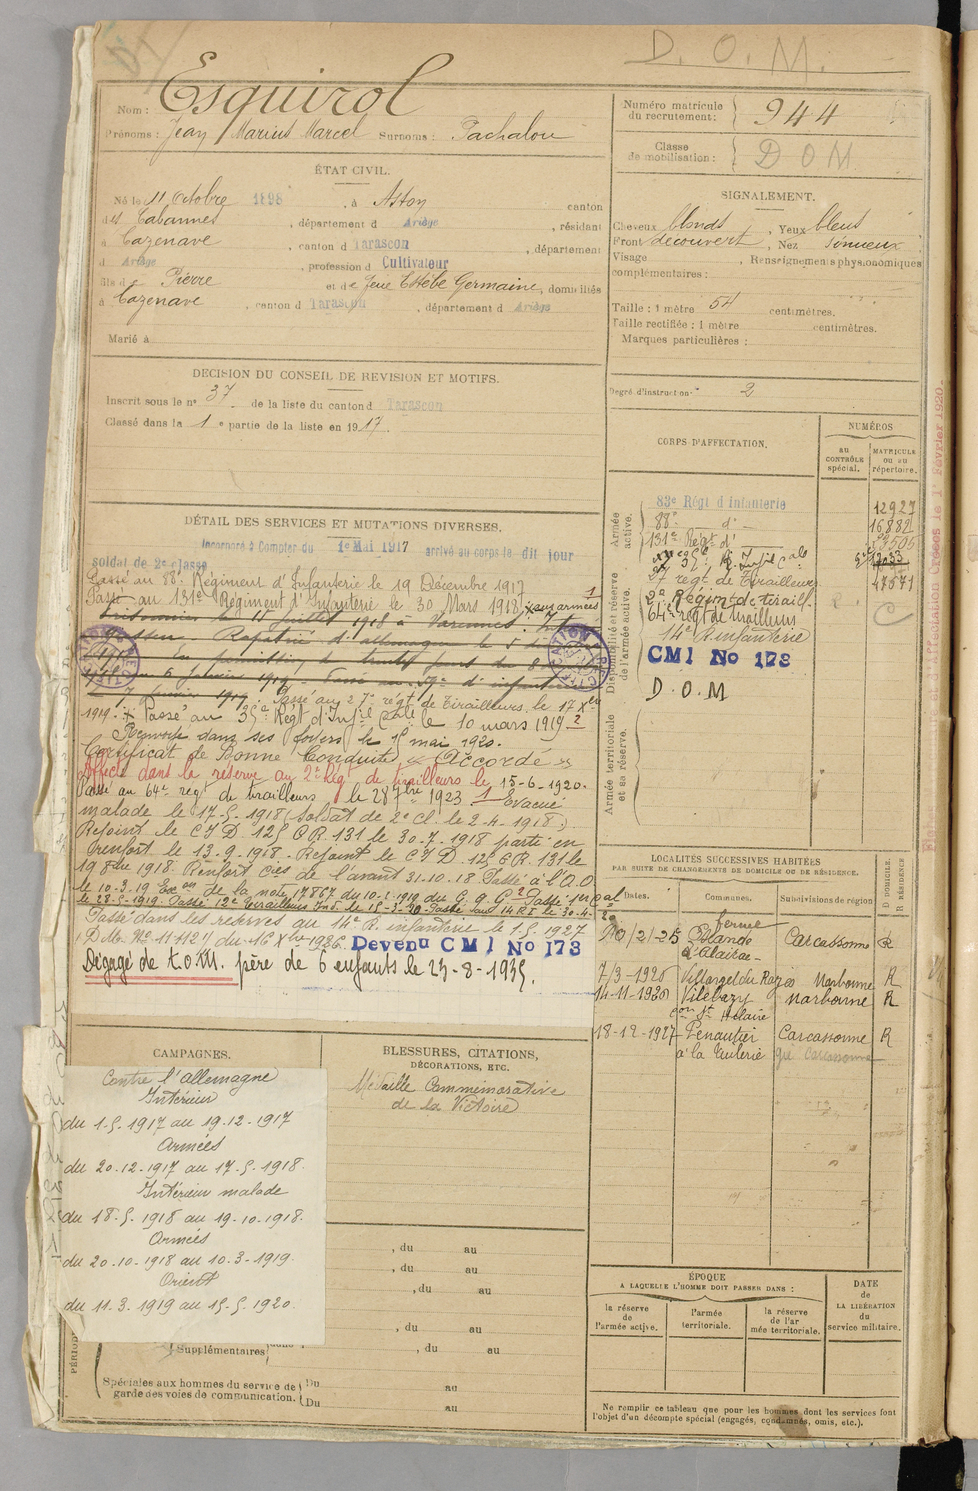 D. O. M.
Nom : Esquirol
Prénoms : Jean Marius Marcel Surnoms : Pachalou
Numéro matricule du recrutement : 944
Classe de mobilisation : D O M
ÉTAT CIVIL.
Né le 11 Octobre 1898, à Aston canton
des Cabannes, département d Ariège, résidant
à Cazenave, canton d Tarascon, département
d Ariège, profession d Cultivateur
fils de Pierre et de feue Estèbe Germaine, domiciliés
à Cazenave, canton d Tarascon, département d Ariège
Marié à
SIGNALEMENT.
Cheveux blonds, Yeux bleus
Front découvert, Nez sinueux
Visage, Renseignements physionomiques
complémentaires :
Taille : 1 mètre 54 centimètres.
Taille rectifiée : 1 mètre centimètres.
Marques particulières :
Degré d'instruction : 2
DECISION DU CONSEIL DE REVISION ET MOTIFS.
Inscrit sous le n° 37 de la liste du canton d Tarascon
Classé dans la 1e partie de la liste en 1917.
DÉTAIL DES SERVICES ET MUTATIONS DIVERSES.
Incorporé à Compter du 1er Mai 1917 arrivé au corps le dit jour
soldat de 2e classe
Passé au 88e Régiment d'Infanterie le 19 Décembre 1917
Passé au 131e Régiment d'Infanterie le 30 Mars 1918 aux armées
Prisonnier le 11 juillet 1918 à Varennes.
Rapatrié d'allemagne le 5
Passé au 27e régt de Tirailleurs le 17 Xbre
1919. + Passé au 35e Régt d'Infie Cale le 10 mars 1919 2
Renvoyé dans ses foyers le 15 mai 1920.
Certificat de Bonne Conduite « Accordé »
Affecté dans la réserve au 2e Régt de tirailleurs le 15-6-1920.
Passé au 64e régt de tirailleurs le 28 7bre 1923 1 Évacué
malade le 17-5-1918 (Soldat de 2e Cl. le 2-4-1918.)
Rejoint le C I D 125 OR. 131 le 30-7-1918 parti en
renfort le 13-9-1918. Rejoint le C I D. 125 6 R. 131 le
19 8bre 1918. Renfort Cies de l'avant 31.10.18 Passé à l'A.O
le 10-3-19 Exon de la note 17867 du 10-2-1919 du G.Q.G
Passé dans les réserves au 14e R. infanterie le 1.5.1927
(D Mle No 11112 1/ du 16 Xbre 1926. Devenu CMI No 173
Dégagé de t.o.M. père de 6 enfants le 23-8-1935.
CORPS D'AFFECTATION.
NUMÉROS
au CONTRÔLE spécial.
MATRICULE ou au répertoire.
Armée active.
83e Régt d'infanterie 12927
88e d° 16882
131e Régt d°
Disponibilité et réserve de l'armée active.
27 régt de Tirailleurs 47571
2e Régimt de tiraill.
64e régt de tirailleurs
14e R. infanterie
CMI No 173
D.O.M
Armée territoriale et sa réserve.
LOCALITÉS SUCCESSIVES HABITÉES
PAR SUITE DE CHANGEMENTS DE DOMICILE OU DE RÉSIDENCE.
Dates. Communes. Subdivisions de région
D. DOMICILE. R. RÉSIDENCE
20/2/25 ferme Blande d'Alairac Carcassonne R
7/3-1926 Villarzel du Razès Narbonne R
14-11-1926 Villebazy con St Hilaire Narbonne R
18-12-1927 Penautier à la Tuilerie Carcassonne R
CAMPAGNES.
Contre l'Allemagne
Intérieur
du 1-5-1917 au 19-12-1917
Armées
du 20-12-1917 au 17-5-1918.
Intérieur malade
du 18-5-1918 au 19-10-1918.
Armées
du 20-10-1918 au 10-3-1919.
Orient
du 11.3.1919 au 15-5-1920.
BLESSURES, CITATIONS,
DÉCORATIONS, ETC.
Médaille Commémorative
de la Victoire
, du au
, du au
, du au
, du au
Supplémentaires , du au
Spéciales aux hommes du service de garde des voies de communication.
Du au
Du au
ÉPOQUE
A LAQUELLE L'HOMME DOIT PASSER DANS :
la réserve de l'armée active.
l'armée territoriale.
la réserve de l'armée territoriale.
DATE DE LA LIBÉRATION du service militaire.
Ne remplir ce tableau que pour les hommes dont les services font
l'objet d'un décompte spécial (engagés, condamnés, omis, etc.).